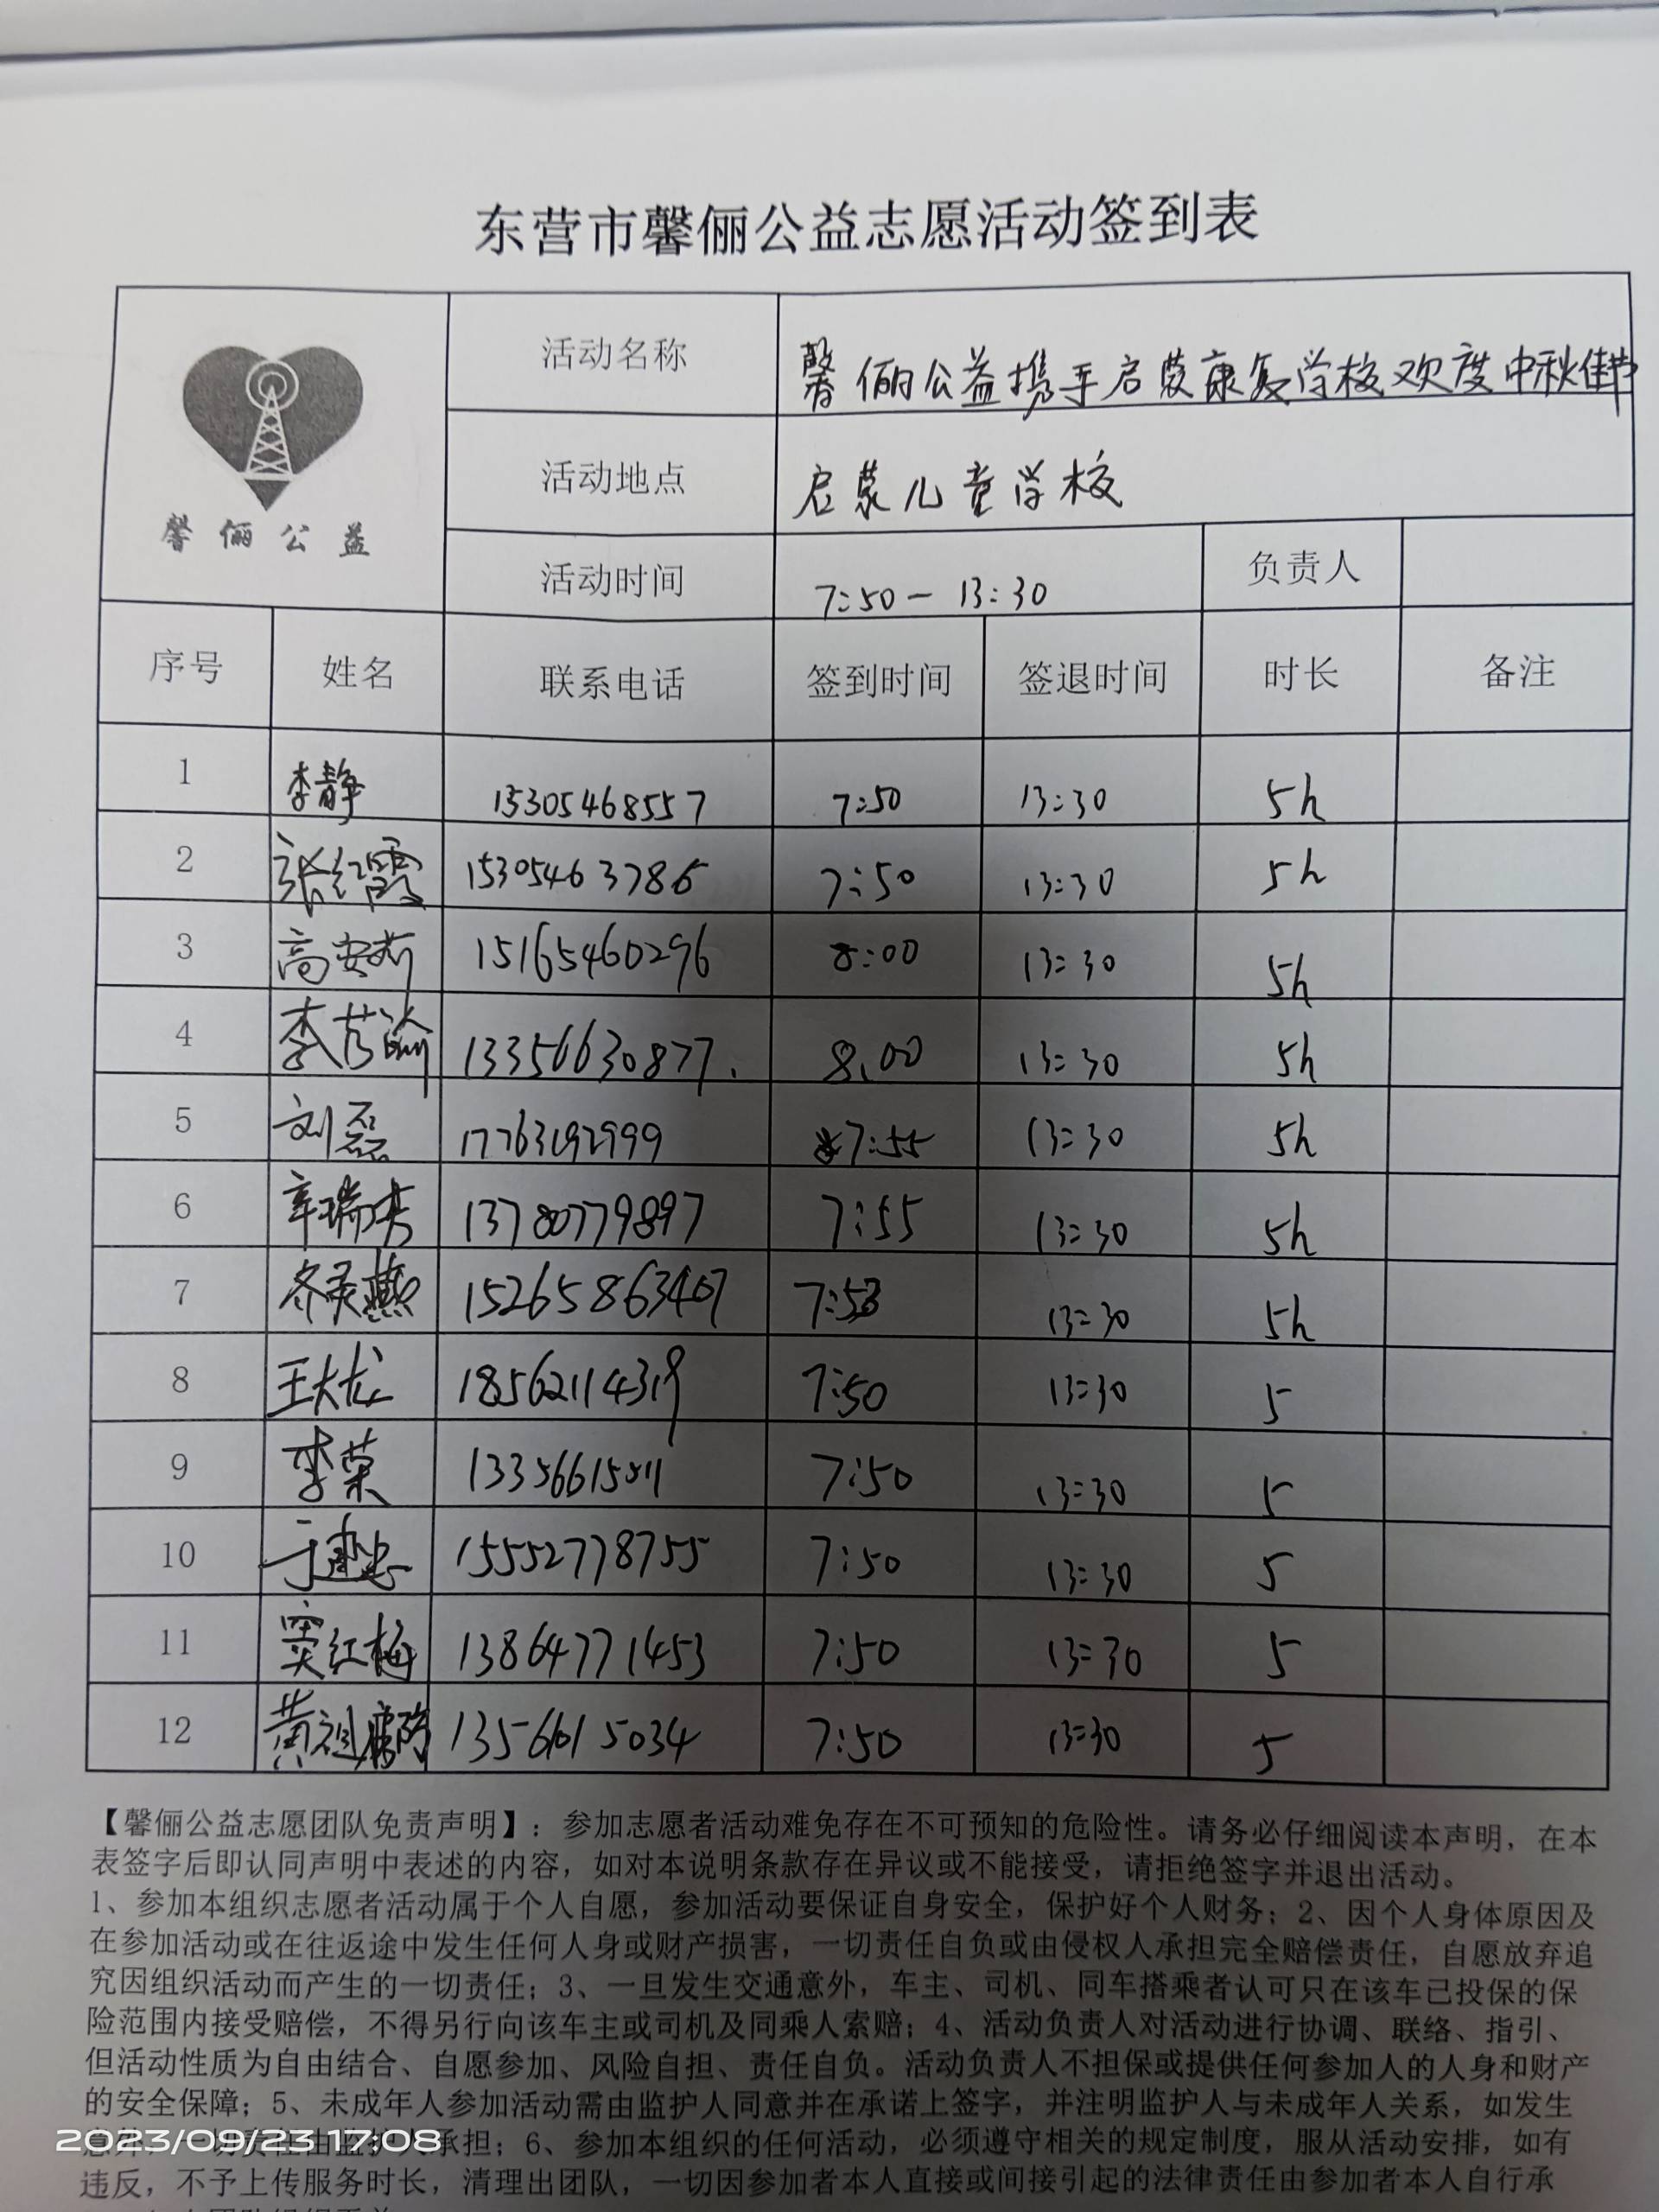 东营市馨俪公益志愿活动签到表
馨俪公益
活动名称 馨俪公益携手启蒙康复学校欢度中秋佳节
活动地点 启蒙儿童学校
活动时间 7:50-13:30 负责人
序号 姓名 联系电话 签到时间 签退时间 时长 备注
1 李静 15305468557 7:50 13:30 5h
2 张红霞 15305463786 7:50 13:30 5h
3 15165460296 8:00 13:30 5h
4 13356630877. 8.00 13:30 5h
5 刘磊 17763192999 7:55 13:30 5h
6 辛瑞 13780779897 7:55 13:30 5h
7 15265863407 7:53 13:30 5h
8 王大龙 18562114319 7:50 13:30 5
9 李荣 13356615511 7:50 13:30 5
10 于建忠 15552778755 7:50 13:30 5
11 窦红梅 13864771453 7:50 13:30 5
12 黄祖 13561615034 7:50 13:30 5
【馨俪公益志愿团队免责声明】:参加志愿者活动难免存在不可预知的危险性。请务必仔细阅读本声明，在本
表签字后即认同声明中表述的内容，如对本说明条款存在异议或不能接受，请拒绝签字并退出活动。
1、参加本组织志愿者活动属于个人自愿，参加活动要保证自身安全，保护好个人财务；2、因个人身体原因及
在参加活动或在往返途中发生任何人身或财产损害，一切责任自负或由侵权人承担完全赔偿责任，自愿放弃追
究因组织活动而产生的一切责任；3、一旦发生交通意外，车主、司机、同车搭乘者认可只在该车已投保的保
险范围内接受赔偿，不得另行向该车主或司机及同乘人索赔；4、活动负责人对活动进行协调、联络、指引、
但活动性质为自由结合、自愿参加、风险自担、责任自负。活动负责人不担保或提供任何参加人的人身和财产
的安全保障；5、未成年人参加活动需由监护人同意并在承诺上签字，并注明监护人与未成年人关系，如发生
一切责任由监护人承担；6、参加本组织的任何活动，必须遵守相关的规定制度，服从活动安排，如有
2023/09/23 17:08
违反，不予上传服务时长，清理出团队，一切因参加者本人直接或间接引起的法律责任由参加者本人自行承